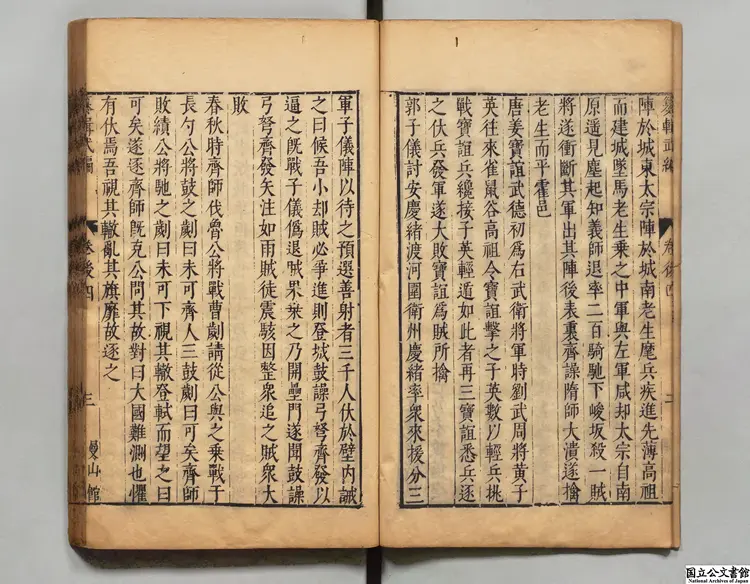 陣於城東太宗陣於城南老生麾兵疾進先薄高祖
而建城墜馬老生乗之中軍與左軍咸却太宗自南
原遥見塵起知義師退率二百騎馳下峻坂殺一賊
將遂衝斷其軍出其陣後表裏齊譟隋師大潰遂擒
老生而平霍邑
唐姜寶誼武德初為右武衛將軍時劉武周將黄子
英往來雀鼠谷高祖令寶誼擊之子英數以輕兵挑
戰寶誼兵纔接子英輕遁如此者再三寶誼悉兵逐
之伏兵發軍遂大敗寶誼為賊所擒
郭子儀討安慶緒渡河圍衛州慶緒率衆來援分三
纂輯武編 卷後四 二
軍子儀陣以待之預選善射者三千人伏於壁内誡
之曰候吾小却賊必爭進則登城鼓譟弓弩齊發以
逼之既戰子儀偽退賊果乗之乃開壘門遂聞鼓譟
弓弩齊發矢注如雨賊徒震駭因整衆追之賊衆大
敗
春秋時齊師伐魯公將戰曹劌請從公與之乗戰于
長勺公將鼓之劌曰未可齊人三鼓劌曰可矣齊師
敗績公將馳之劌曰未可下視其轍登軾而望之曰
可矣遂逐齊師既克公問其故對曰大國難測也懼
有伏焉吾視其轍亂其旗靡故逐之
纂輯武編 卷後四 三 曼山館
国立公文書館
National Archives of Japan